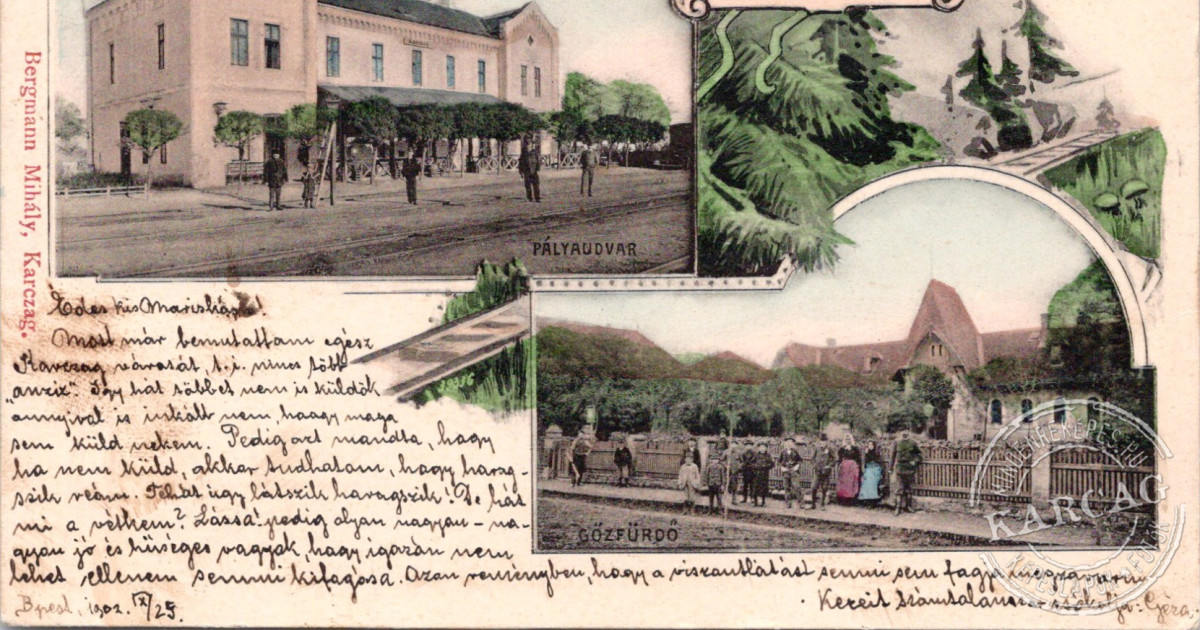 Bergmann Mihály, Karczag.
PÁLYAUDVAR
Édes kis Mariskám!
Most már bemutattam egész
Karczag városát, t. i. nincs több
„anzix". Így hát többet nem is küldök
annyival is inkább nem, haagy maga
sem küld nekem. Pedig azt mondta, hogy
ha nem küld, akkor tudhatom, hogy harag-
szik reám. Tehát úgy látszik haragszik! De hát
mi a vétkem? Lássa! pedig olyan nagyon-na-
gyon jó és hűséges vagyok, hogy igazán nem
lehet ellenem semmi kifogása. Azon reményben, hogy a viszontlátást semmi sem fogja
Kezeit számtalanszor csókolja: Géza
Bpest, 1902. IX/25.
39356
GŐZFÜRDŐ
MINDENHEKEPES.HU
KARCAG